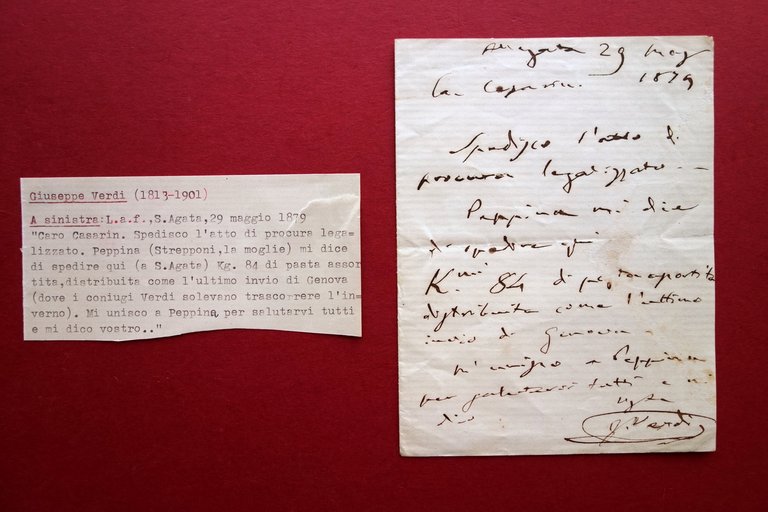 Giuseppe Verdi (1813-1901)
A sinistra:L.a.f.,S.Agata,29 maggio 1879
"Caro Casarin. Spedisco l'atto di procura lega=
lizzato. Peppina (Strepponi,la moglie) mi dice
di spedire qui (a S.Agata) Kg. 84 di pasta assor
tita,distribuita come l'ultimo invio di Genova
(dove i coniugi Verdi solevano trascorrere l'in=
verno). Mi unisco a Peppina per salutarvi tutti
e mi dico vostro.."
29 mag
1879
Spedisco l'atto di
procura legalizzato. —
Peppina mi dice
di spedire qui
K.mi 84 di pasta
distribuita come l'ultimo
invio di Genova —
a Peppina
per salutarvi tutti e mi
dico
G. Verdi